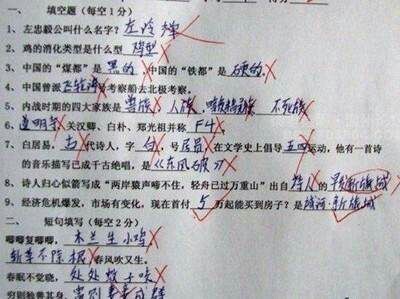 一、 填空题(每空1分)
1、左忠毅公叫什么名字?左冷禅
2、鸡的消化类型是什么型 阵型
3、中国的“煤都”是 黑的,中国的“铁都”是 硬的.
4、中国曾派 考察船去北极考察。
5、内战时期的四大家族是 兽族、人族、暗夜精灵族 不死族
6、道明寺、关汉卿、白朴、郑光祖并称 F4。
7、白居易,古 代诗人,字 白,号 居易 在文学史上倡导 五四 运动,他有一首诗
的音乐描写已成千古绝唱,是《东风破》
8、诗人归心似箭写成“两岸猿声啼不住,轻舟已过万重山”出自 诗人 的
9、经济危机爆发,市场有变化,现在首付 5 万起能买到房子?是
二、 短句填写(每空2分)
唧唧复唧唧, 木兰生小鸡
斩草不除根 春风吹又生。
春眠不觉晓, 处处蚊子咬
穷则独善其身,